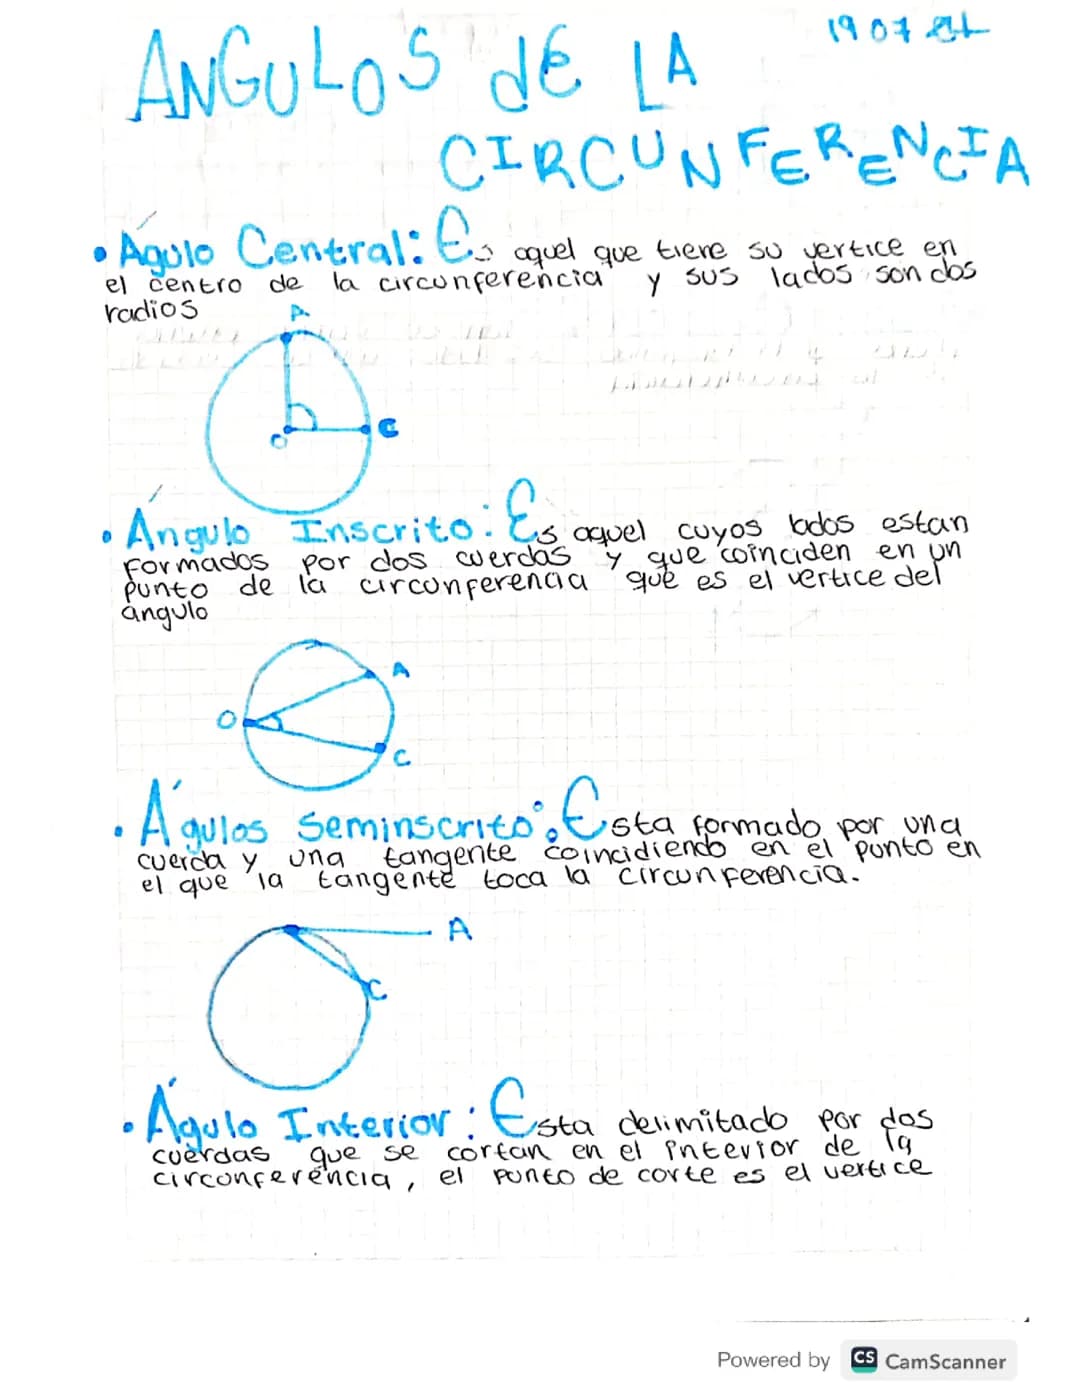 ANGULOS dE LA
CIRCUNFERENCIA
• Águlo Central: Es aquel que tiene su vertice en
el centro de la circunferencia y sus lados son dos
radios
A
O
C
• Ángulo Inscrito: Es aquel cuyos lados estan
formados por dos cuerdas y que coinciden en un
punto de la circunferencia que es el vertice del
angulo
A
O
C
• Águlos Seminscrito: Esta formado por una
cuerda y una tangente coincidiendo en el punto en
el que la tangente toca la circunferencia.
A
C
• Águlo Interior: Esta delimitado por dos
cuerdas que se cortan en el interior de la
circunferencia, el punto de corte es el vertice
Powered by CS CamScanner